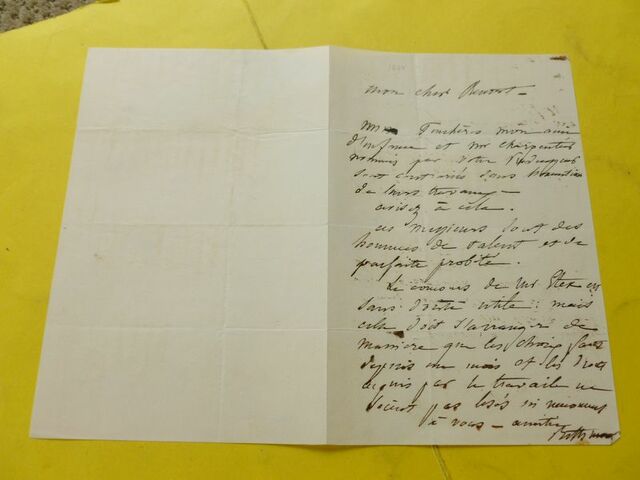 mon cher
Mr Feuchères mon ami
d'enfance et mr charpentier
nommés par votre
sont contrariés dans
de leurs travaux —
avisez à cela.
ces messieurs sont des
hommes de talent et de
parfaite probité.
Le concours de Mr Etex est
sans doute utile : mais
cela doit s'arranger de
manière que les choix faits
depuis un mois et les droits
acquis par le travail ne
soient pas lésés
à vous — amitié